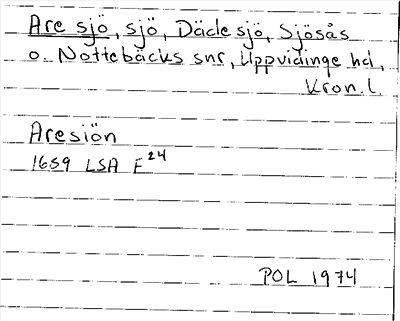 Are sjö, sjö, Dädesjö, Sjösås
o. Nottebäcks snr, Uppvidinge hd,
Kron. l.
Aresiön
1689 LSA F 24
POL 1974